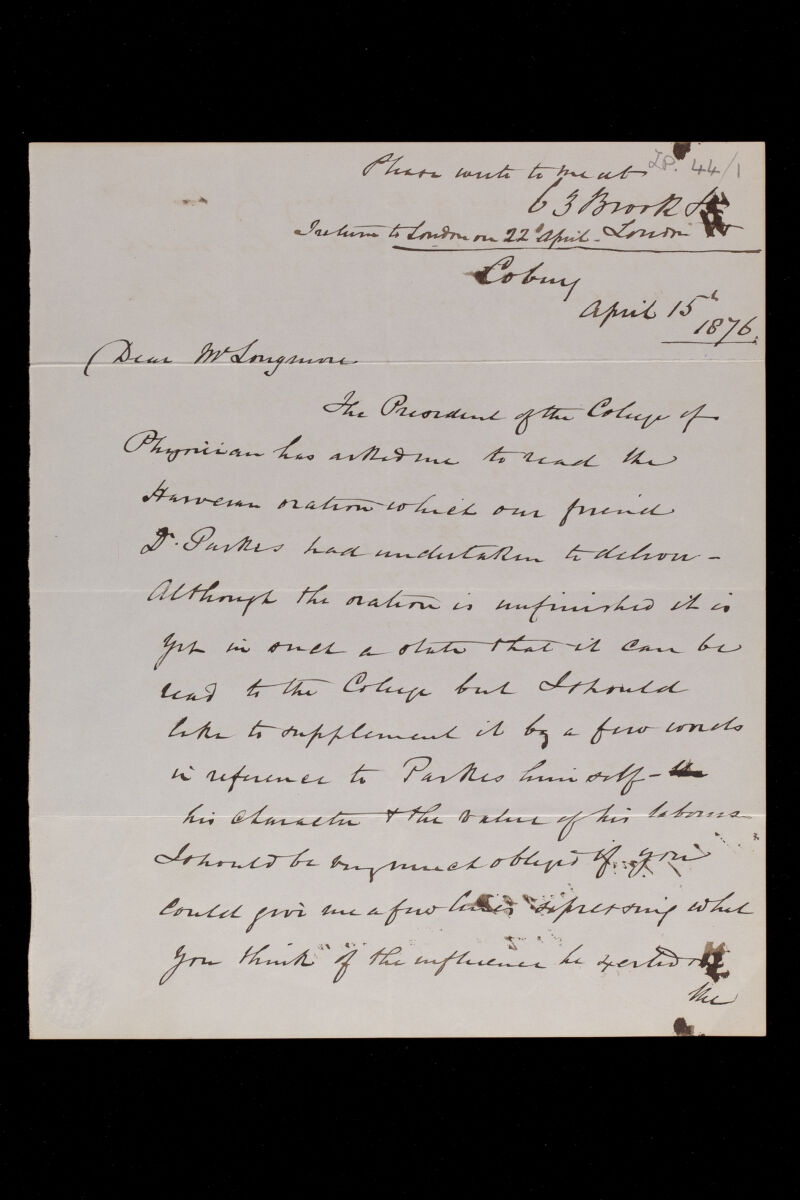 LP. 44/1
Please write to me at
63 Brook St
I return to London on 22d April - London W
Coburg
April 15th
1876.
Dear Mr Longmore
The President of the College of
Physician has asked me to read the
Harveian oration which our friend
Dr. Parkes had undertaken to deliver -
Although the oration is unfinished it is
yet in such a state that it can be
read to the College but I should
like to supplement it by a few words
in reference to Parkes himself -
his character & the value of his labours
I should be very much obliged if you
could give me a few lines expressing what
you think of the influence he exerted on
the